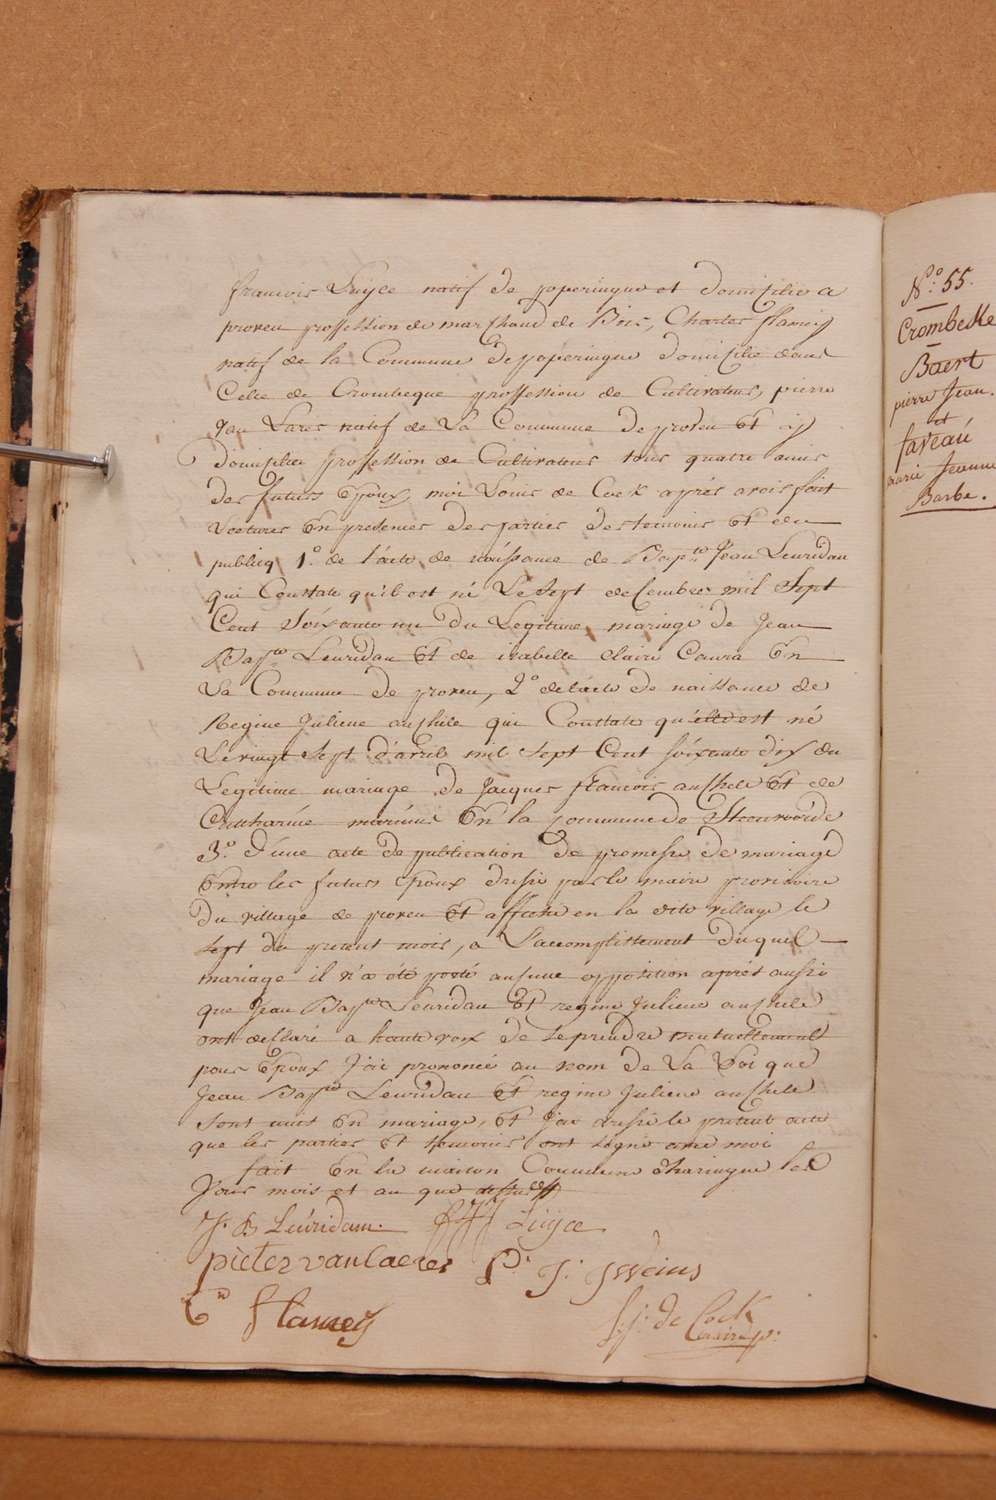 francois Luijce natif de poperingue et domicilie a
proven proffession de marchand de Bois, Charles flameij
natif de la Commune de poperingue domicilie dans
Celle de Crombeque proffession de Cultivateur, pierre
Van Lares natif de La Commune de proven et ij
domicilie proffession de Cultivateur tous quatre amis
des futurs Epoux, moi Louis de Cock aprés avoir fait
Lectures En presences des parties des temoins Et du
publicq 1.º de l'acte de naissance de Bapte Jean Leuridan
qui Constate qu'il est né Le Sept decembre mil Sept
Cent Soixante un du Legitime mariage de Jean
Bapte Leuridan Et de isabelle claire Caura En
La Commune de proven, 2º de l'acte de naissance de
Regine Juliene auchile qui Constate qu'elle est né
Le vingt Sept d'avril mil Sept Cent Soixante dix du
Legitime mariage de Jacques francois auchele Et de
Catharine En la Commune de Steenvoorde
3.º d'une acte de publication de promesse de mariage
Entre les futurs Epoux dressé par le maire provisoire
Du village de proven Et affiché en la dite village le
Sept du present mois, a L'accomplissement duquel
mariage il n'a été porté aucune opposition aprés aussi
que Jean Bapte Leuridan Et regine Juliene auchele
ont declaré a haute voix de Se prendre mutuellement
pour Epoux J'ai prononcé au nom de La Loi que
Jean Bapte Leuridan Et regine Juliene auchele
Sont unis En mariage, Et J'ai dressé le present acte
que les parties Et temoins ont Signé avec moi
fait En la maison Commune d'haringue les
Jour mois et an que dessus
J. B Leúridam. Luijce
pieter vanlaeres P. J.
C flameij
L. J. de Cock
N.º 55.
Crombecke
Baert
pierre Jean.
et
faveaú
marie Jeanne
Barbe.